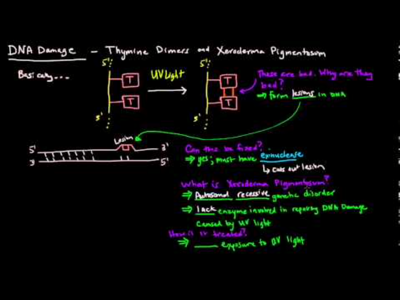 DNA Damage - Thymine Dimers and Xeroderma Pigmentosum
Basically...
5'
T
T
3'
UV light
5'
T
T
3'
These are bad. Why are they bad?
⇒ form lesions in DNA
Lesion
5' 3'
3' 5'
Can this be fixed?
⇒ yes; must have exonuclease
↳ cuts out lesion
What is Xeroderma Pigmentosum?
⇒ Autosomal recessive genetic disorder
⇒ lack enzyme involved in repairing DNA Damage
caused by UV light
How is it treated?
⇒ ____ exposure to UV light